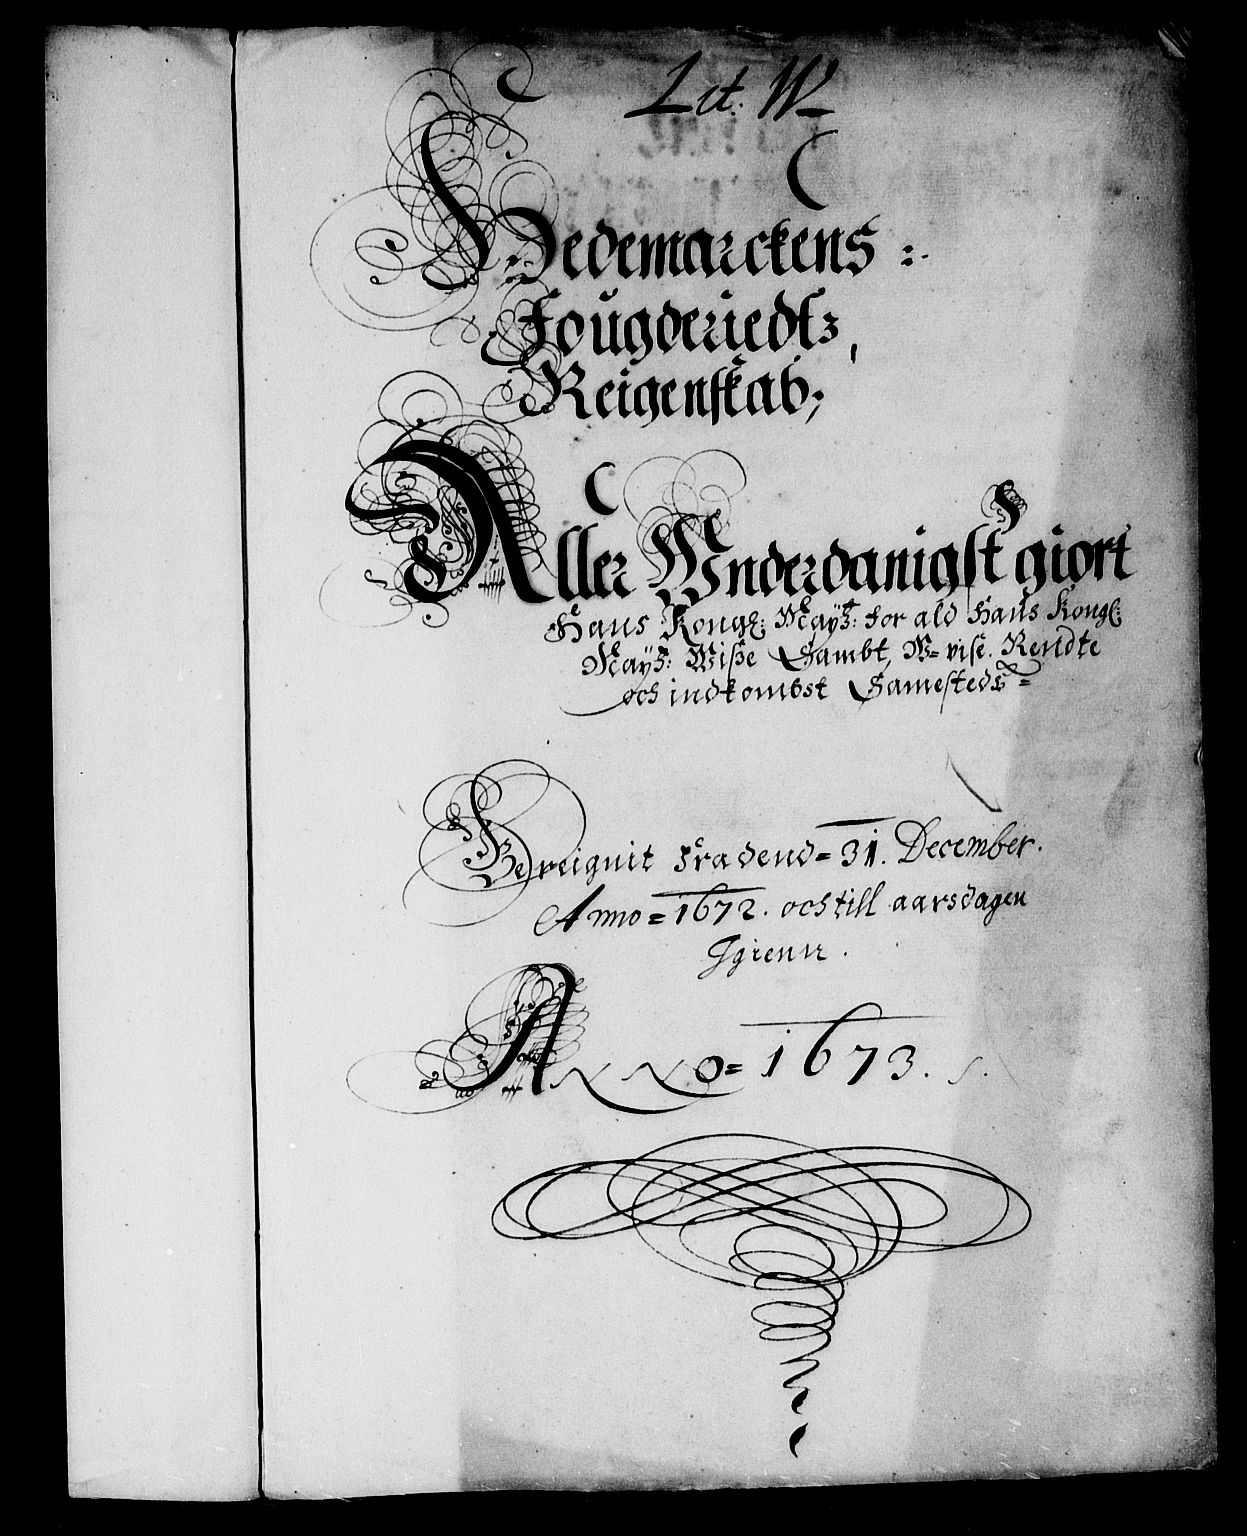 Lit: W
Hedemarckens :
Fougderiedtz
Reigenskab;
Aller Wnderdanigst giort
Hans Kongl: Mayt: for ald Hans Kongl:
Mayt: Wisse Sambt, W=vise. Rendte
och indkombst Samesteds
Bereignit fra dend= 31. December.
Anno= 1672. och till aarsdagen
Igienn .
ANNO= 1673.